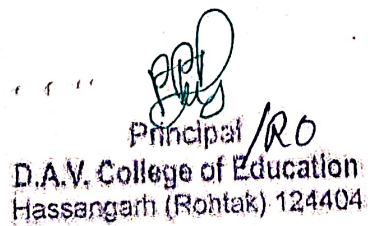 Principal /RO
D.A.V. College of Education
Hassangarh (Rohtak) 124404